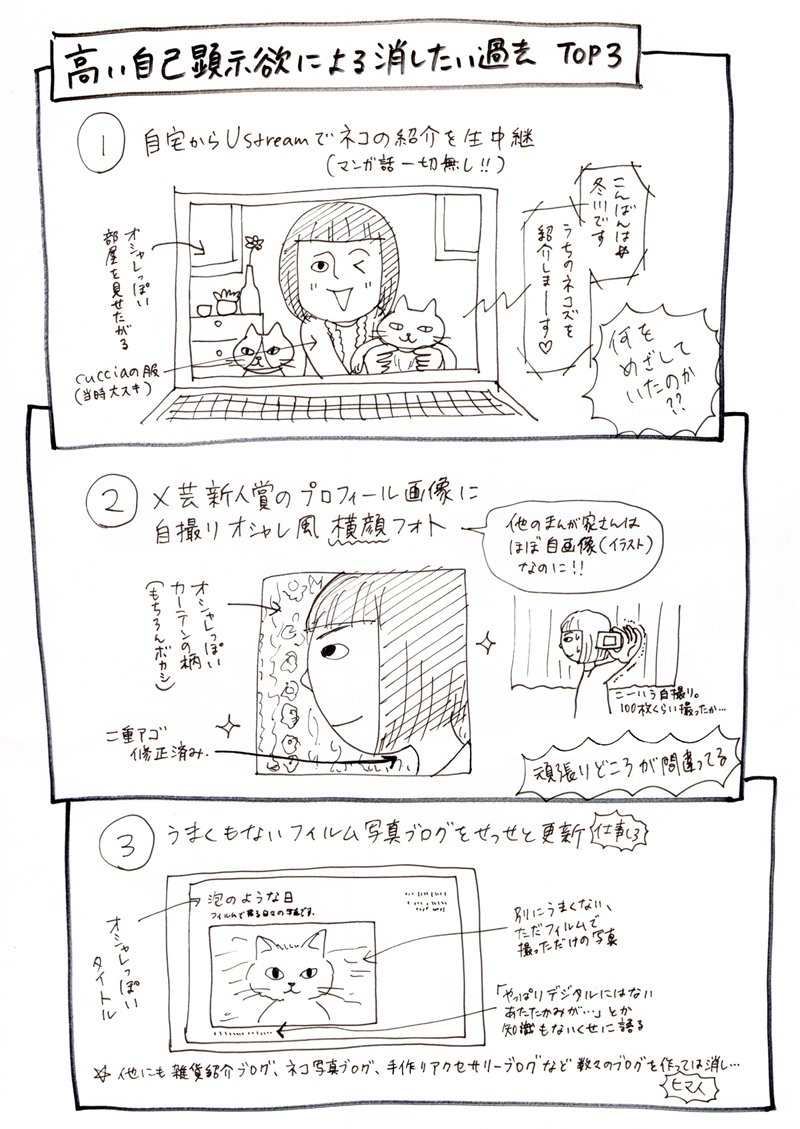 高い自己顕示欲による消したい過去 TOP3
① 自宅からUstreamでネコの紹介を生中継
(マンガ話一切無し!!)
こんばんは☆
冬川です
うちのネコズを
紹介しまーす♡
オシャレっぽい
部屋を見せたがる
cucciaの服
(当時大スキ)
何を
めざして
いたのか
??
② メ芸新人賞のプロフィール画像に
自撮りオシャレ風横顔フォト
他のまんが家さんは
ほぼ自画像(イラスト)
なのに!!
オシャレっぽい
カーテンの柄
(もちろんボカシ)
二重アゴ
修正済み.
こーいう自撮り。
100枚くらい撮ったか…
頑張りどころが間違ってる
③ うまくもないフィルム写真ブログをせっせと更新
仕事しろ
泡のような日
フィルムで撮る日々の写真です.
オシャレっぽい
タイトル
別にうまくない、
ただフィルムで
撮っただけの写真
「やっぱりデジタルにはない
あたたかみが…」とか
知識もないくせに語る
☆他にも雑貨紹介ブログ、ネコ写真ブログ、手作りアクセサリーブログなど数々のブログを作っては消し…
ヒマイ